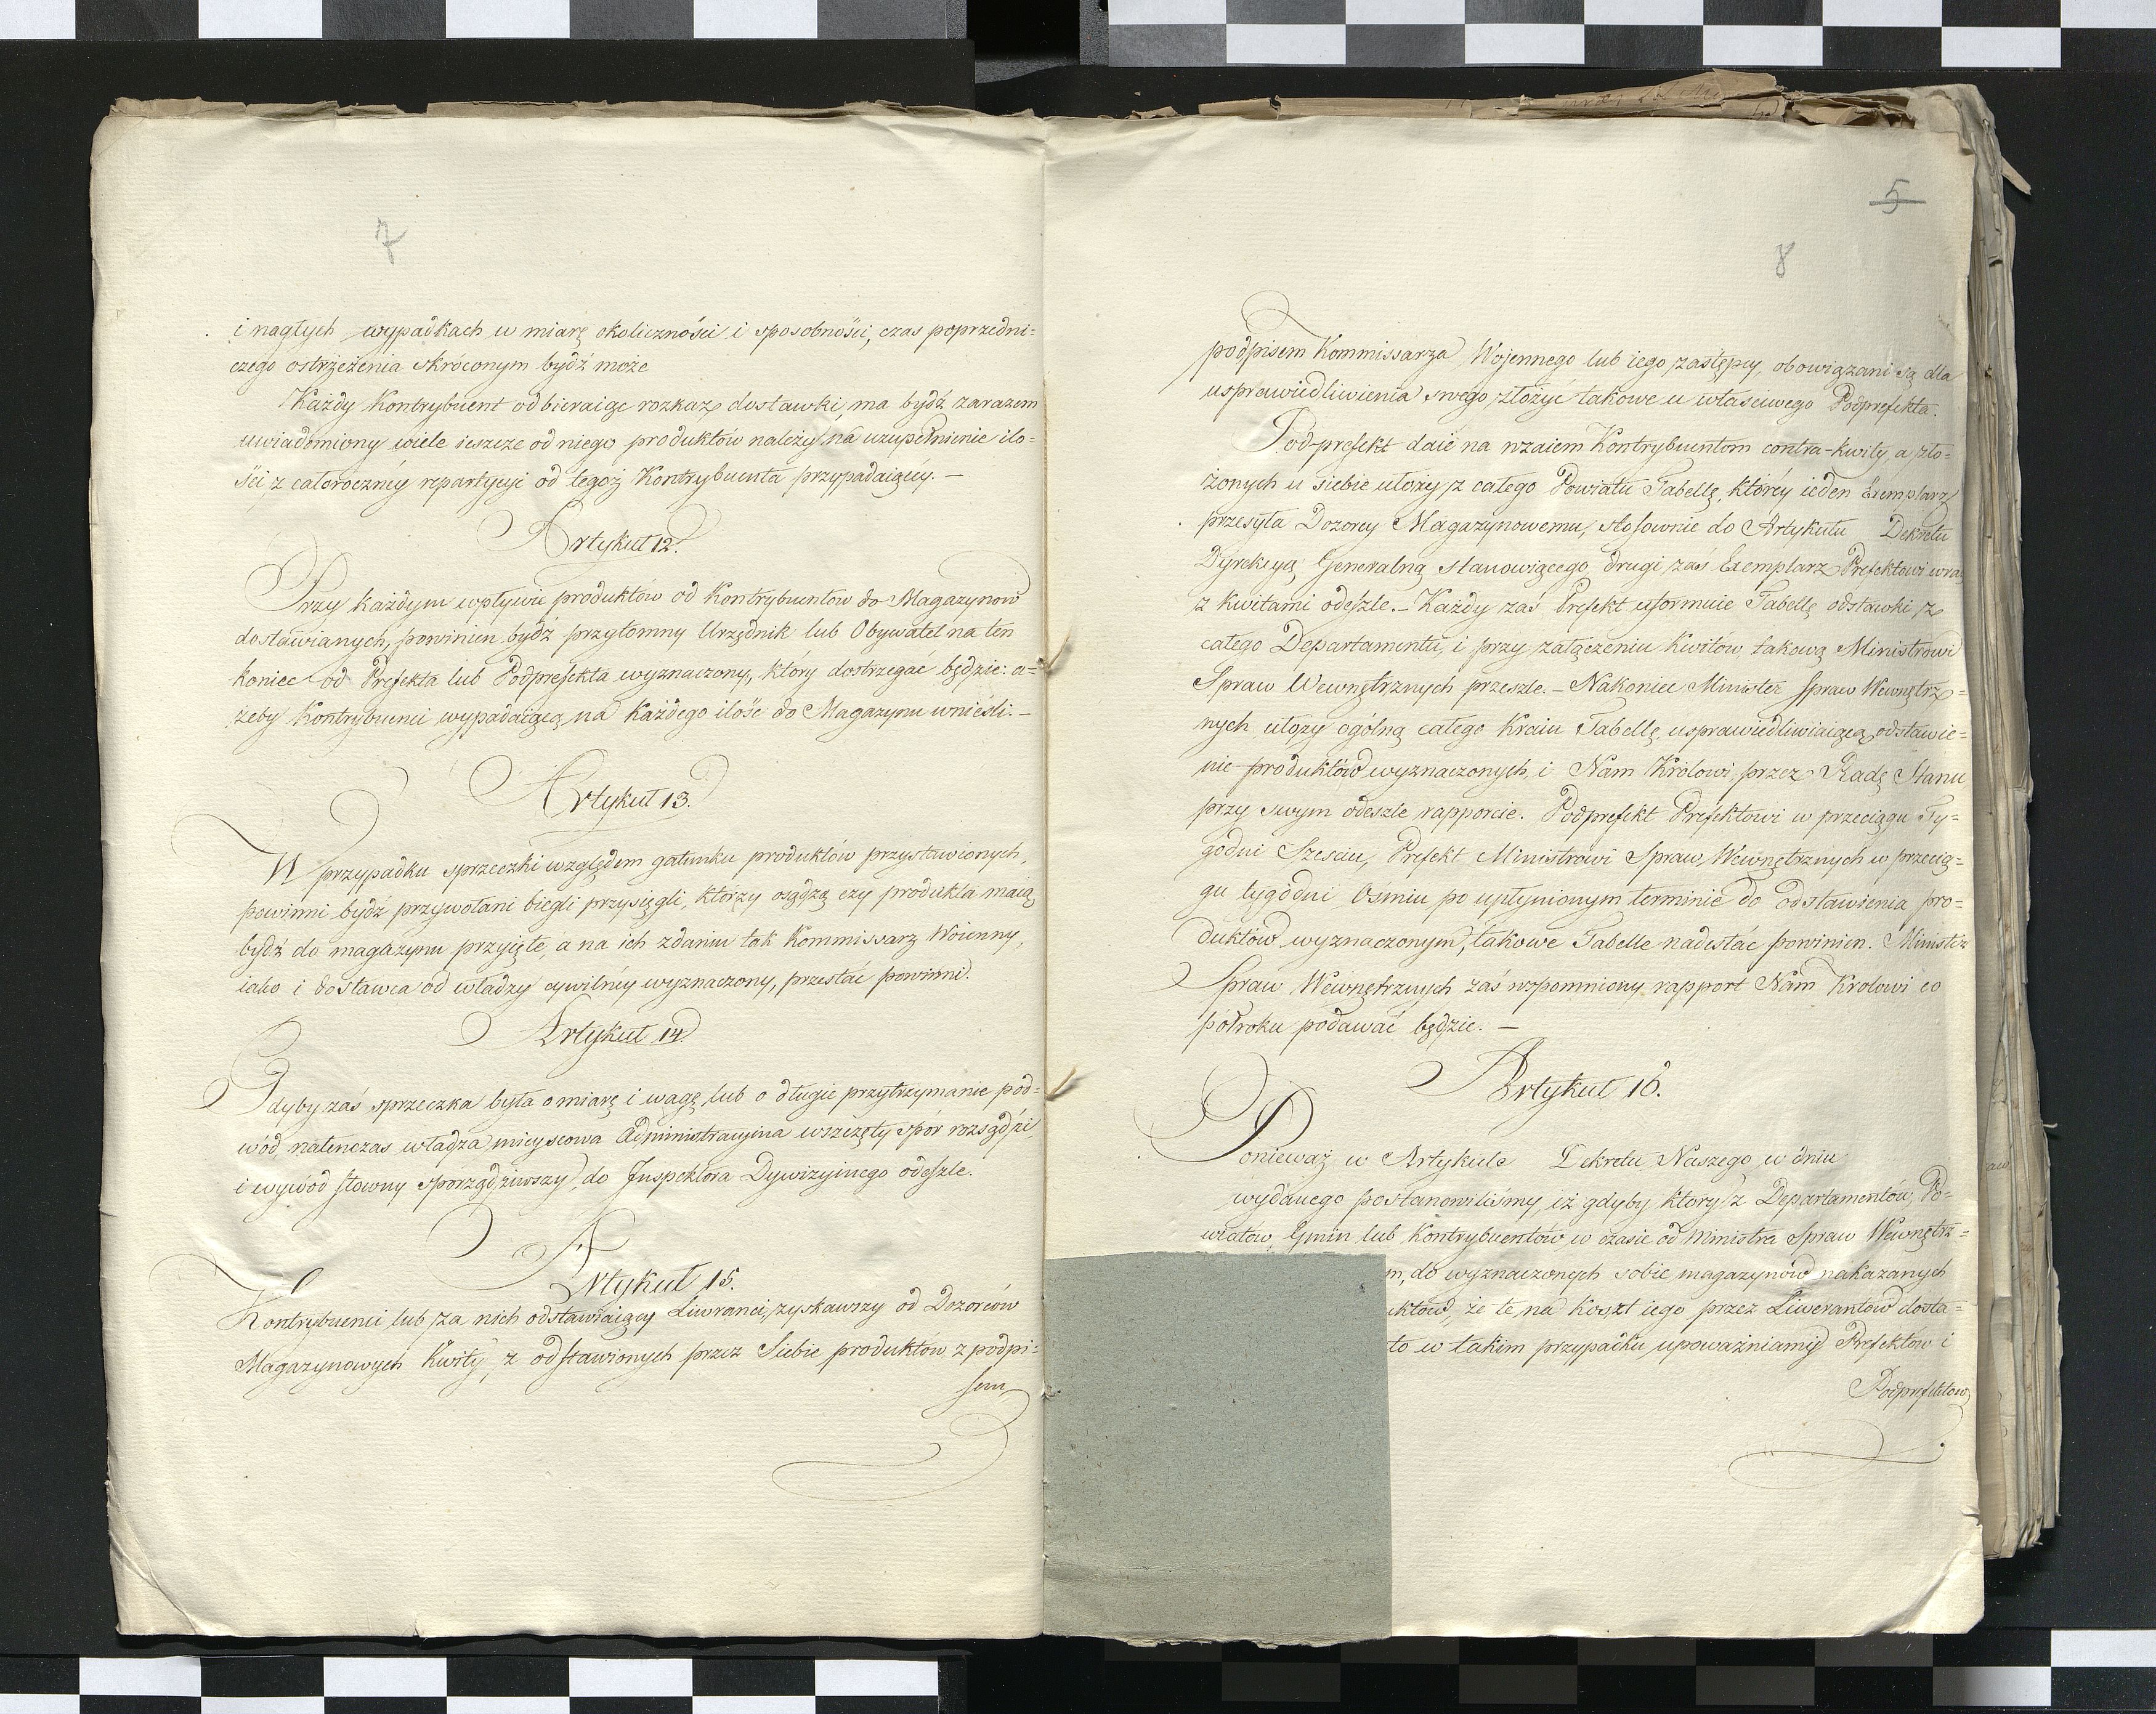 7
i nagłych wypadkach w miarę okoliczności i sposobności, czas poprzedni=
czego ostrzeżenia skróconym bydź może
Każdy Kontrybuent odbieraiąc rozkaz dostawki, ma bydź zarazem
uwiadomiony wiele ieszcze od niego produktów należy na uzupełnienie ilo=
ści z całoroczney repartycyi od tegoż Kontrybuenta przypadaiącey. —
Artykuł 12.
Przy każdym wpływie produktów od Kontrybuentów do Magazynow
dostawianych, powinien bydź przytomny Urzędnik lub Obywatel na ten
koniec od Prefekta lub Podprefekta wyznaczony, który dostrzegać będzie: a=
żeby Kontrybuenci wypadaiącą na każdego ilość do Magazynu wnieśli. —
Artykuł 13.
W przypadku sprzeczki względem gatunku produktów przystawionych,
powinni bydź przywołani biegli przysięgli, którzy osądzą czy produkta maią
bydź do magazynu przyięte, a na ich zdaniu tak Kommissarz Woienny,
iako i dostawca od władzy cywilney wyznaczony, przestać powinni.
Artykuł 14
Gdyby zaś sprzeczka była o miarę i wagę lub o długie przytrzymanie pod=
wód, natenczas władza mieyscowa Administracyina wszczęty spór rozsądzi,
i wywód słowny sporządziwszy, do Inspektora Dywizyinego odeszle.
Artykuł 15.
Kontrybuenci lub za nich odstawiaiący Liwranci, zyskawszy od Dozorców
Magazynowych Kwity, z odstawionych przez Siebie produktów z podpi=
sem
5
8
podpisem Kommissarza Wojennego lub iego zastępcy, obowiązani są dla
usprawiedliwienia swego złożyć takowe u właściwego Podprefekta.
Pod-prefekt daie na wzaiem Kontrybuentom contra-kwity, a zło=
żonych u siebie ułoży z całego Powiatu Tabellę, którey ieden Exemplarz
przesyła Dozorcy Magazynowemu, stosownie do Artykułu Dekretu
Dyrekcyą Generalną stanowiącego, drugi zaś Exemplarz Prefektowi wraz
z kwitami odeszle. — Każdy zaś Prefekt uformuie Tabellę odstawki z
całego Departamentu, i przy załączeniu Kwitów takową Ministrowi
Spraw Wewnętrznych przeszle. — Nakoniec Minister Spraw Wewnętrz=
nych ułoży ogólną całego Kraiu Tabellę usprawiedliwiaiącą odstawie=
nie produktów wyznaczonych, i Nam Królowi przez Radę Stanu
przy swym odeszle rapporcie. Podprefekt Prefektowi w przeciągu Ty=
godni Sześciu, Prefekt Ministrowi Spraw Wewnętrznych w przecią=
gu tygodni Ośmiu po upłynionym terminie do odstawienia pro=
duktów wyznaczonym, takowe Tabelle nadesłać powinien. Minister
Spraw Wewnętrznych zaś wspomniony rapport Nam Krolowi co
półroku podawać będzie. —
Artykuł 16.
Ponieważ w Artykule Dekretu Naszego w dniu
wydanego postanowiliśmy, iż gdyby który z Departamentów, Po=
wiatów, Gmin lub Kontrybuentów w czasie od Ministra Spraw Wewnętrz=
m, do wyznaczonych sobie magazynów nakazanych
uktów, że te na koszt iego przez Liwerantów dosta=
to w takim przypadku upoważniamy Prefektów i
Podprefektow